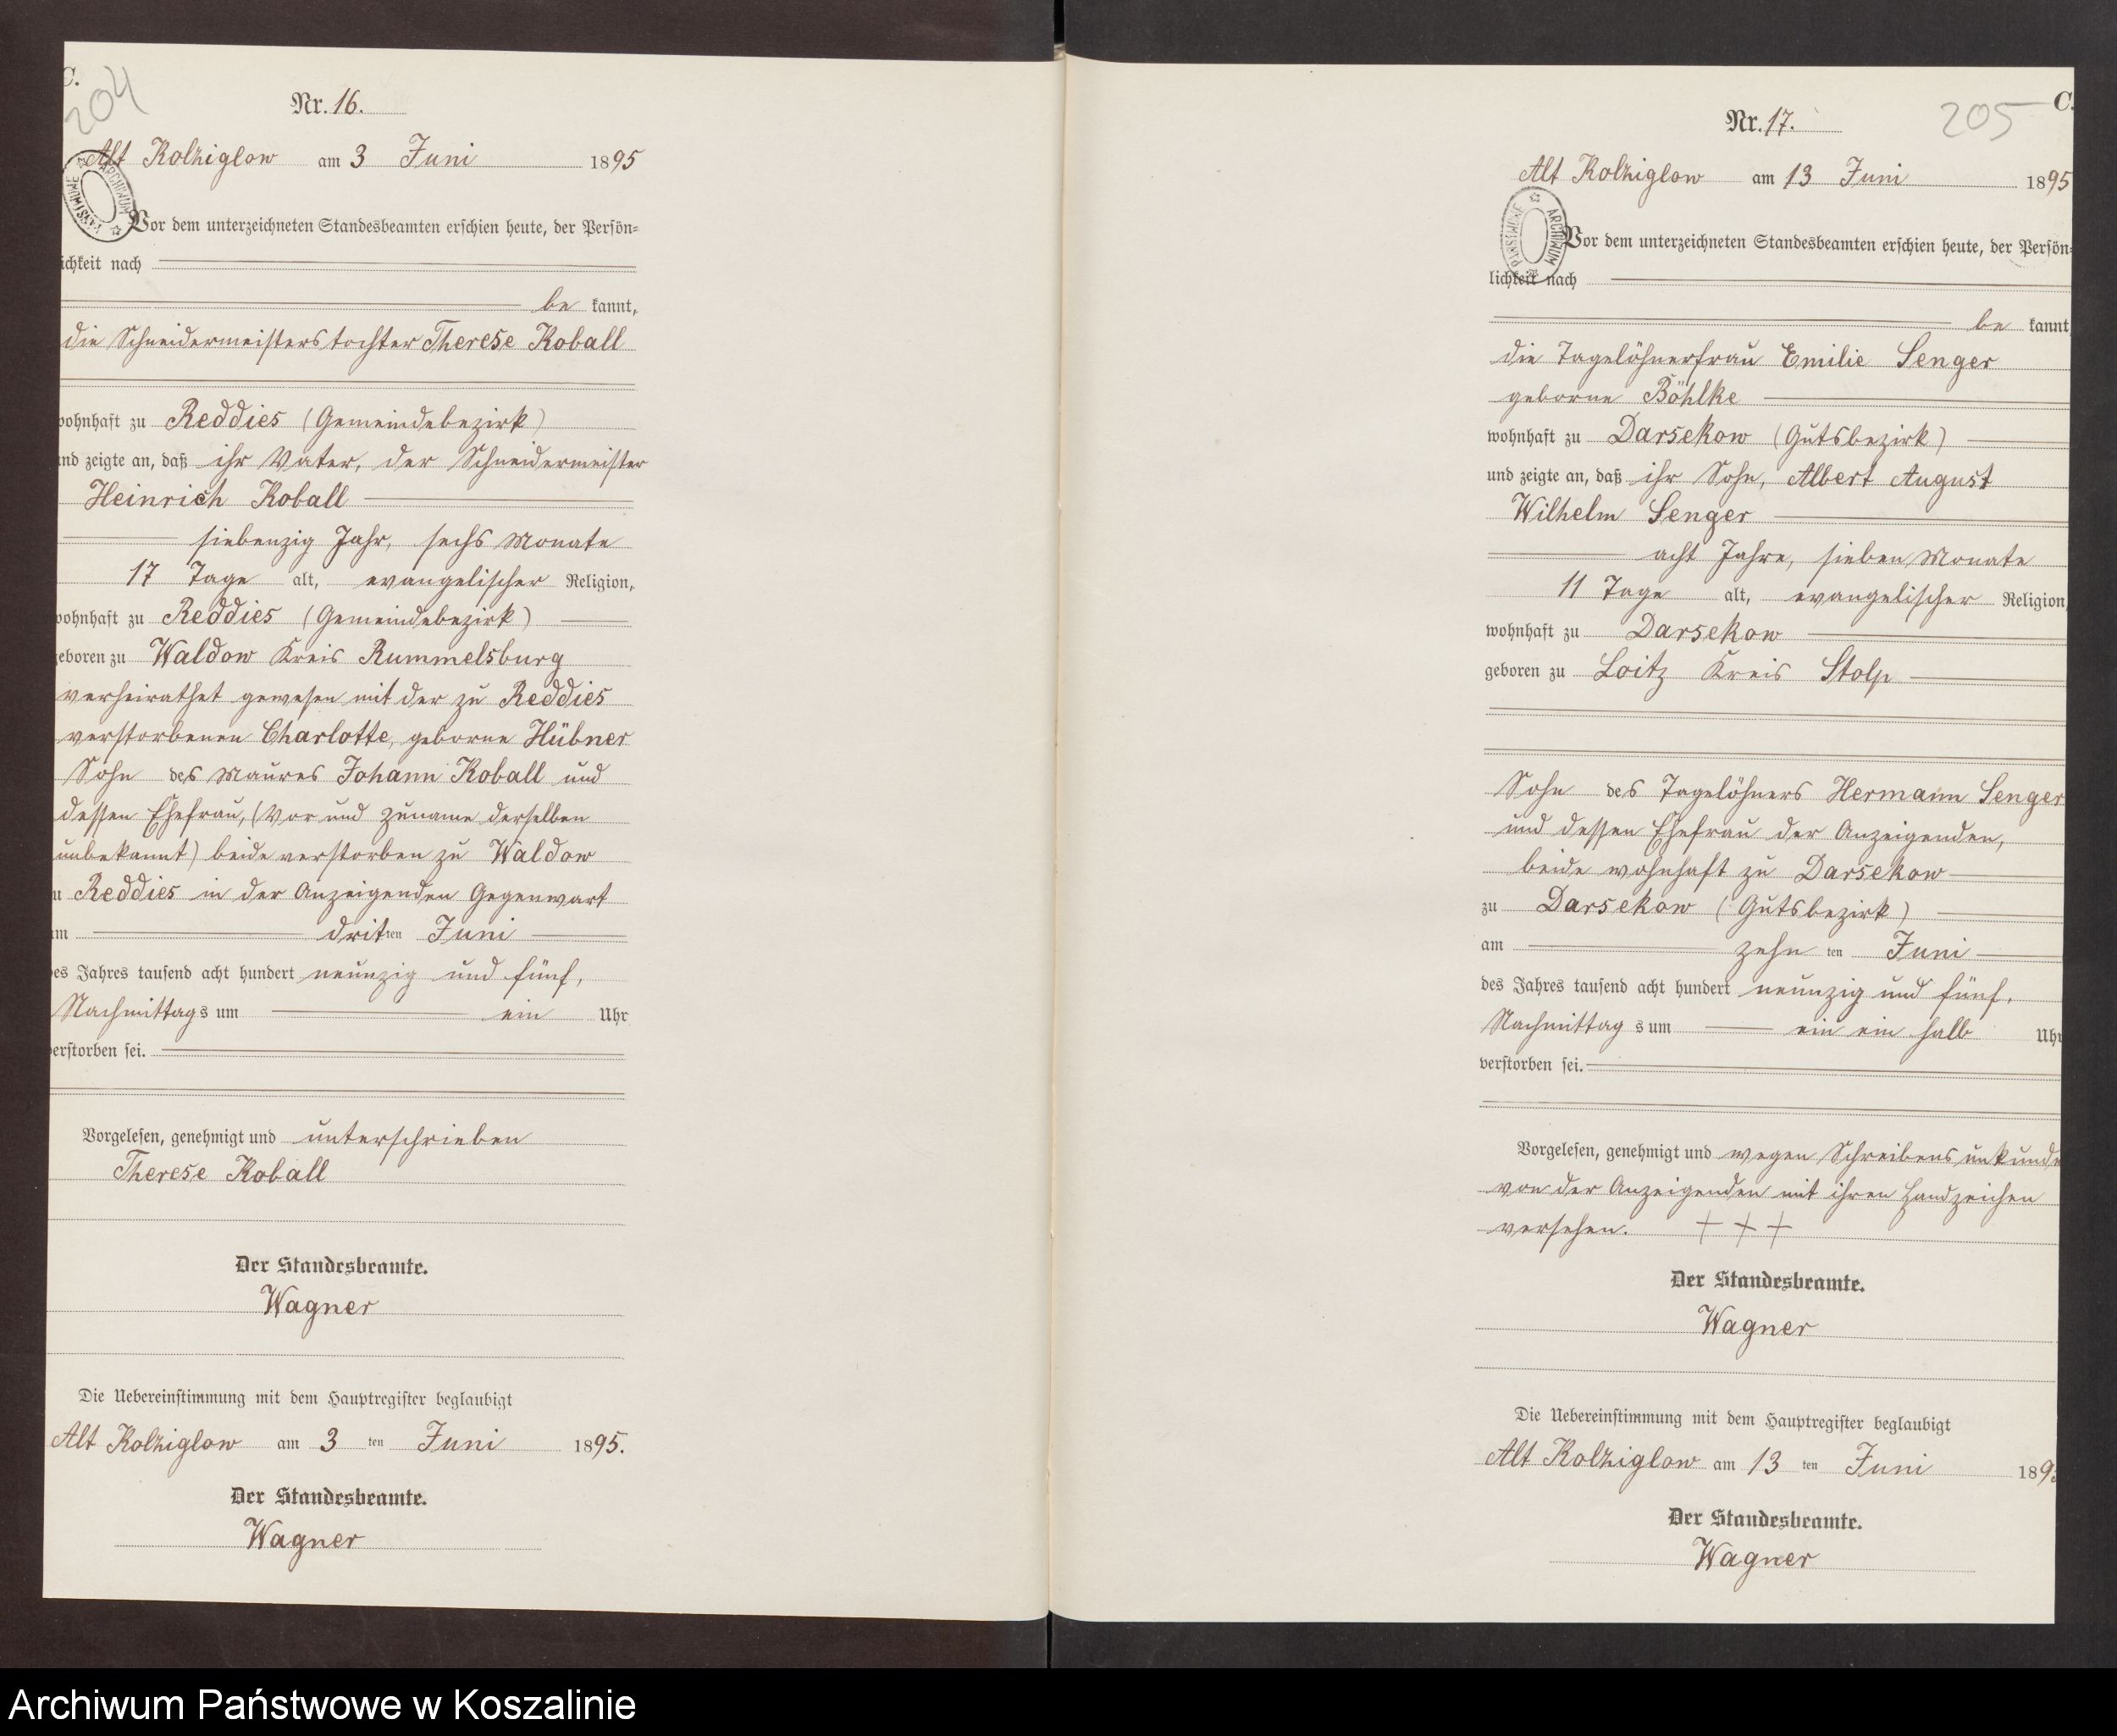 C.
204
Nr. 16.
Alt Kolziglow am 3 Juni 1895
ARCHIWUM PAŃSTWOWE
Vor dem unterzeichneten Standesbeamten erschien heute, der Persön=
lichkeit nach
be kannt,
die Schneidermeisterstochter Therese Koball
wohnhaft zu Reddies (Gemeindebezirk)
und zeigte an, daß ihr Vater, der Schneidermeister
Heinrich Koball
siebenzig Jahr, sechs Monate
17 Tage alt, evangelischer Religion,
wohnhaft zu Reddies (Gemeindebezirk)
geboren zu Waldow Kreis Rummelsburg
verheirathet gewesen mit der zu Reddies
verstorbenen Charlotte, geborne Hübner
Sohn des Maures Johann Koball und
dessen Ehefrau, (Vor und Zuname derselben
unbekannt) beide verstorben zu Waldow
zu Reddies in der Anzeigenden Gegenwart
am dritten Juni
des Jahres tausend acht hundert neunzig und fünf,
Nachmittags um ein Uhr
verstorben sei.
Vorgelesen, genehmigt und unterschrieben
Therese Koball
Der Standesbeamte.
Wagner
Die Uebereinstimmung mit dem Hauptregister beglaubigt
Alt Kolziglow am 3 ten Juni 1895.
Der Standesbeamte.
Wagner
C.
205
Nr. 17.
Alt Kolziglow am 13 Juni 1895
ARCHIWUM PAŃSTWOWE
Vor dem unterzeichneten Standesbeamten erschien heute, der Persön=
lichkeit nach
be kannt
die Tagelöhnerfrau Emilie Senger
geborne Böhlke
wohnhaft zu Darsekow (Gutsbezirk)
und zeigte an, daß ihr Sohn, Albert August
Wilhelm Senger
acht Jahre, sieben Monate
11 Tage alt, evangelischer Religion,
wohnhaft zu Darsekow
geboren zu Loitz Kreis Stolp
Sohn des Tagelöhners Hermann Senger
und dessen Ehefrau der Anzeigenden,
beide wohnhaft zu Darsekow
zu Darsekow (Gutsbezirk)
am zehn ten Juni
des Jahres tausend acht hundert neunzig und fünf,
Nachmittag s um ein ein halb Uhr
verstorben sei.
Vorgelesen, genehmigt und wegen Schreibensunkunde
von der Anzeigenden mit ihren Handzeichen
versehen. + + +
Der Standesbeamte.
Wagner
Die Uebereinstimmung mit dem Hauptregister beglaubigt
Alt Kolziglow am 13 ten Juni 189
Der Standesbeamte.
Wagner
Archiwum Państwowe w Koszalinie